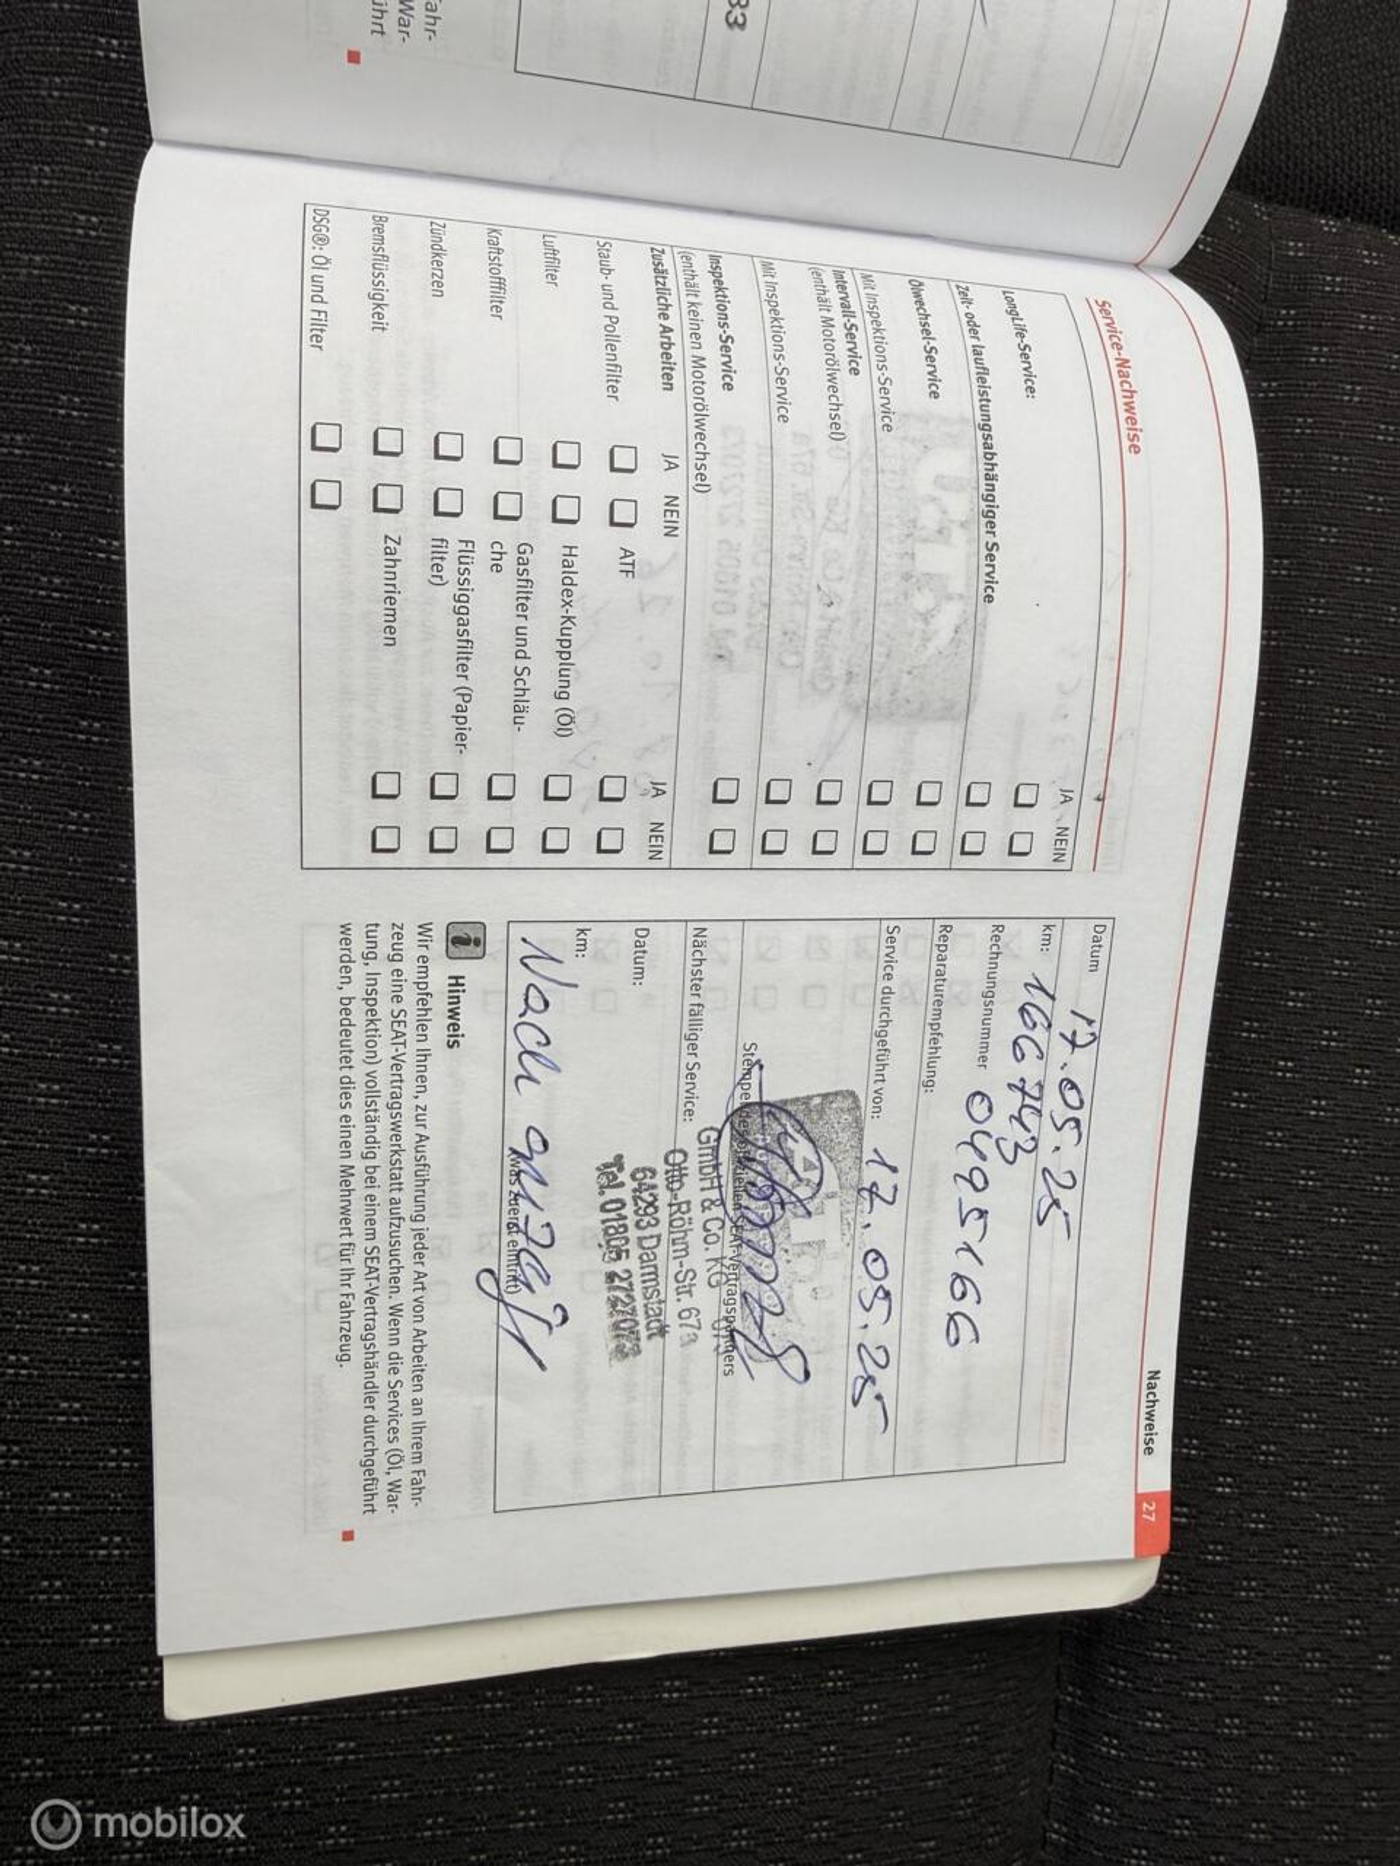 Nachweise 27
Service-Nachweise
JA NEIN
LongLife-Service:
Zeit- oder laufleistungsabhängiger Service
Ölwechsel-Service
Mit Inspektions-Service
Intervall-Service
(enthält Motorölwechsel)
Mit Inspektions-Service
Inspektions-Service
(enthält keinen Motorölwechsel)
Zusätzliche Arbeiten JA NEIN JA NEIN
Staub- und Pollenfilter ATF
Luftfilter Haldex-Kupplung (Öl)
Kraftstofffilter Gasfilter und Schläu-
che
Zündkerzen Flüssiggasfilter (Papier-
filter)
Bremsflüssigkeit Zahnriemen
DSG®: Öl und Filter
Datum 17.05.25
km: 166743
Rechnungsnummer 0495166
Reparaturempfehlung:
Service durchgeführt von: 17.05.25
GmbH & Co. KG
Nächster fälliger Service:
Otto-Röhm-Str. 67
Datum:
64293 Darmstadt
Tel. 01805 2727073
km:
Nach anzeige
(was zuerst eintritt)
Hinweis
Wir empfehlen Ihnen, zur Ausführung jeder Art von Arbeiten an Ihrem Fahr-
zeug eine SEAT-Vertragswerkstatt aufzusuchen. Wenn die Services (Öl, War-
tung, Inspektion) vollständig bei einem SEAT-Vertragshändler durchgeführt
werden, bedeutet dies einen Mehrwert für Ihr Fahrzeug.
33
ahr-
War-
ührt
mobilox